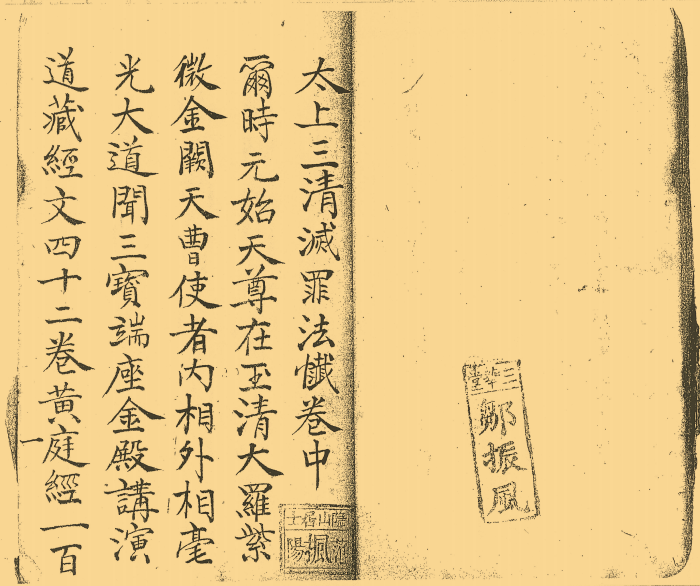 三
鄒振風
太上三清滅罪法懺卷中
爾時元始天尊在玉清大羅紫
微金闕天曹使者内相外相毫
光大道聞三寶端座金殿講演
道藏經文四十二卷黃庭經一百